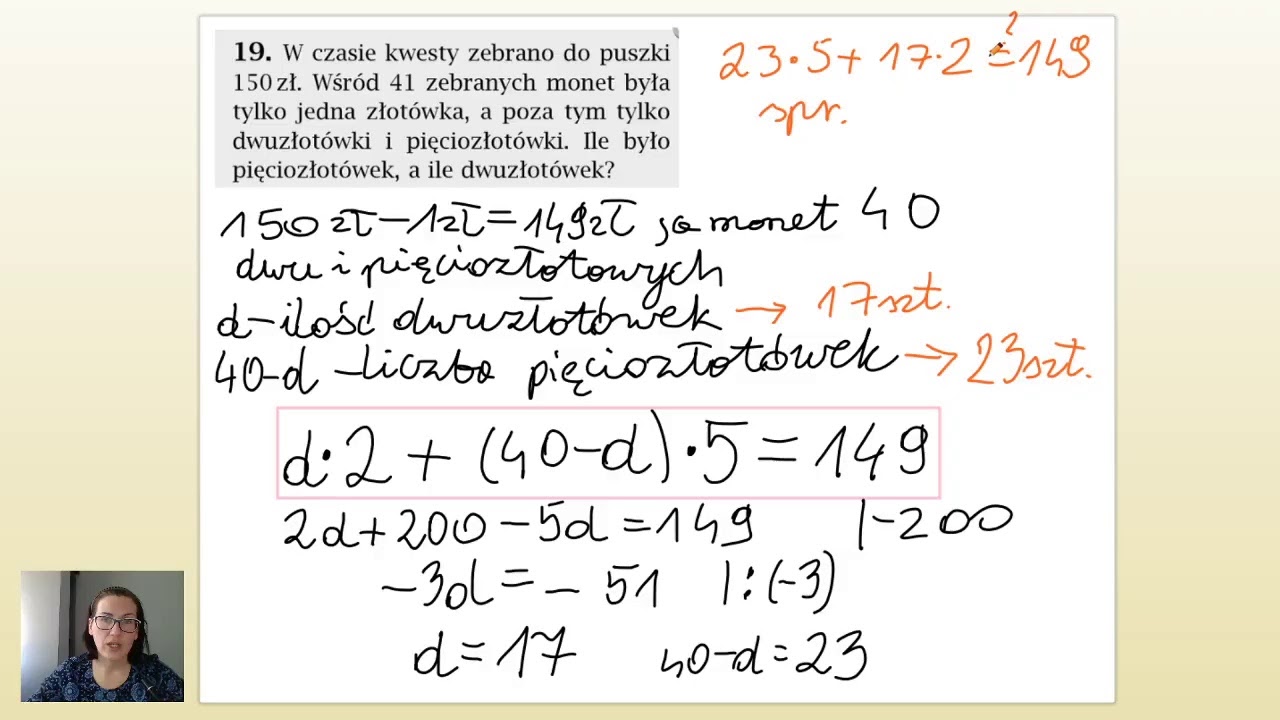 19. W czasie kwesty zebrano do puszki
150 zł. Wśród 41 zebranych monet była
tylko jedna złotówka, a poza tym tylko
dwuzłotówki i pięciozłotówki. Ile było
pięciozłotówek, a ile dwuzłotówek?
23·5+ 17·2 ≟ 149
spr.
150 zł - 1 zł = 149 zł ja monet 40
dwu i pięciozłotowych
d - ilość dwuzłotówek → 17 szt.
40-d - liczba pięciozłotówek → 23 szt.
d·2 + (40-d)·5 = 149
2d+200 - 5d = 149 |-200
-3d = - 51 |:(-3)
d = 17 40-d = 23